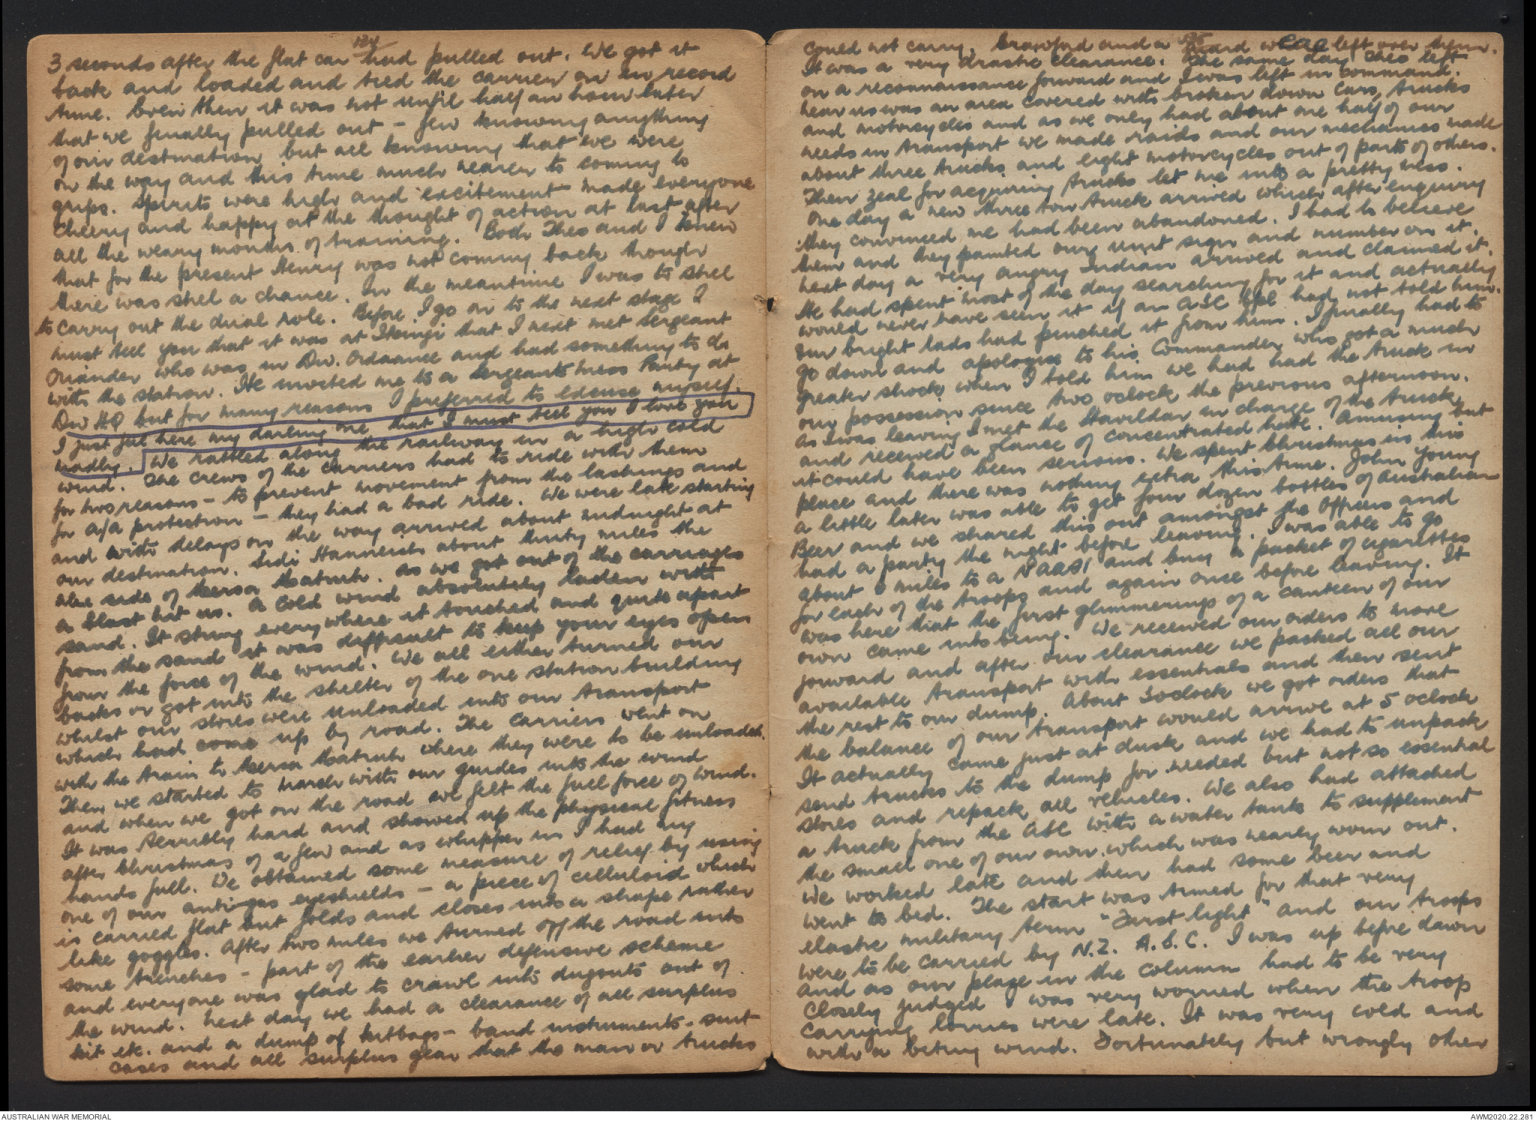 124
3 seconds after the flat car had pulled out. We got it
back and loaded and tied the carrier on in record
time. Even then it was not until half an hour later
that we finally pulled out - few knowing anything
of our destination but all knowing that we were
on the way and this time much nearer to coming to
grips. Spirits were high and excitement made everyone
cheery and happy at the thought of action at last after
all the weary months of training. Both Theo and I knew
that for the present Henry was not coming back though
there was stil a chance. In the meantime I was to stil
to carry out the dual role. Before I go on to the next stage I
must tell you that it was at Ikingi that I next met Sergeant
Oriander who was in Div. Ordnance and had something to do
with the station. He invited me to a Sergeants mess Party at
Div HQ but for many reasons I preferred to excuse myself.
I just feel here my darling one that I must tell you I love you
madly. We rattled along the railway in a high cold
wind. The crews of the carriers had to ride with them
for two reasons - to prevent movement from the lashings and
for a/a protection - they had a bad ride. We were late starting
and with delays on the way arrived about midnight at
our destination. Sidi Hanneish about thirty miles the
alex side of Mersa Matruh. As we got out of the carriages
a blast hit us. A cold wind absolutely laden with
sand. It stung everywhere it touched and quite apart
from the sand it was difficult to keep your eyes open
from the force of the wind. We all either turned our
backs or got into the shelter of the one station building
whilst our stores were unloaded into our transport
which had come up by road. The carriers went on
with the train to Mersa Matruh where they were to be unloaded.
Then we started to march with our guides into the wind
and when we got on the road we felt the full force of wind.
It was terribly hard and showed up the physical fitness
after Christmas of a few and as whipper in I had my
hands full. We obtained some measure of relief by using
one of our antigas eyeshields - a piece of celluloid which
is carried flat but folds and closes into a shape rather
like goggles. After two miles we turned off the road into
some trenches - part of the earlier defensive scheme
and everyone was glad to crawl into dugouts out of
the wind. Next day we had a clearance of all surplus
kit etc. and a dump of kitbags - band instruments - suit
cases and all surplus gear that the man or trucks
125
could not carry. Crawford and a guard were left over them.
It was a very drastic clearance. The same day Theo left
on a reconnaissance forward and I was left in command.
Near us was an area covered with broken down cars, trucks
and motorcycles and as we only had about one half of our
needs in transport we made raids and our mechanics made
about three trucks and eight motorcycles out of parts of others.
Their zeal for acquiring trucks let me into a pretty mess.
One day a new three ton truck arrived which after enquiry
they convinced me had been abandoned. I had to believe
them and they painted our unit sign and number on it.
Next day a very angry Indian arrived and claimed it.
He had spent most of the day searching for it and actually
would never have seen it if an ASC Cpl had not told him.
Our bright lads had pinched it from him. I finally had to
go down and apologise to his Commander who got a much
greater shock when I told him we had had the truck in
our possession since two oclock the previous afternoon.
As I was leaving I met the Havildar in charge of the truck
and received a glance of concentrated hate. Amusing but
it could have been serious. We spent Christmas in this
place and there was nothing extra this time. John Young
a little later was able to get four dozen bottles of Australian
Beer and we shared this out amongst the Officers and
had a party the night before leaving. I was able to go
about 8 miles to a NAAFI and buy a packet of cigarettes
for each of the troops and again once before leaving. It
was here that the first glimmerings of a canteen of our
own came into being. We received our orders to move
forward and after our clearance we packed all our
available transport with essentials and then sent
the rest to our dump. About 3oclock we got orders that
the balance of our transport would arrive at 5 oclock
It actually came just at dusk and we had to unpack
send trucks to the dump for needed but not so essential
stores and repack all vehicles. We also had attached
a truck from the ASC with a water tank to supplement
the small one of our own, which was nearly worn out.
We worked late and then had some beer and
went to bed. The start was timed for that very
elastic military term "First light" and our troops
were to be carried by N.Z. A.S.C. I was up before dawn
and as our place in the column had to be very
closely judged I was very worried when the troop
carrying lorries were late. It was very cold and
with a biting wind. Fortunately but wrongly other
AUSTRALIAN WAR MEMORIAL
AWM2020.22.281